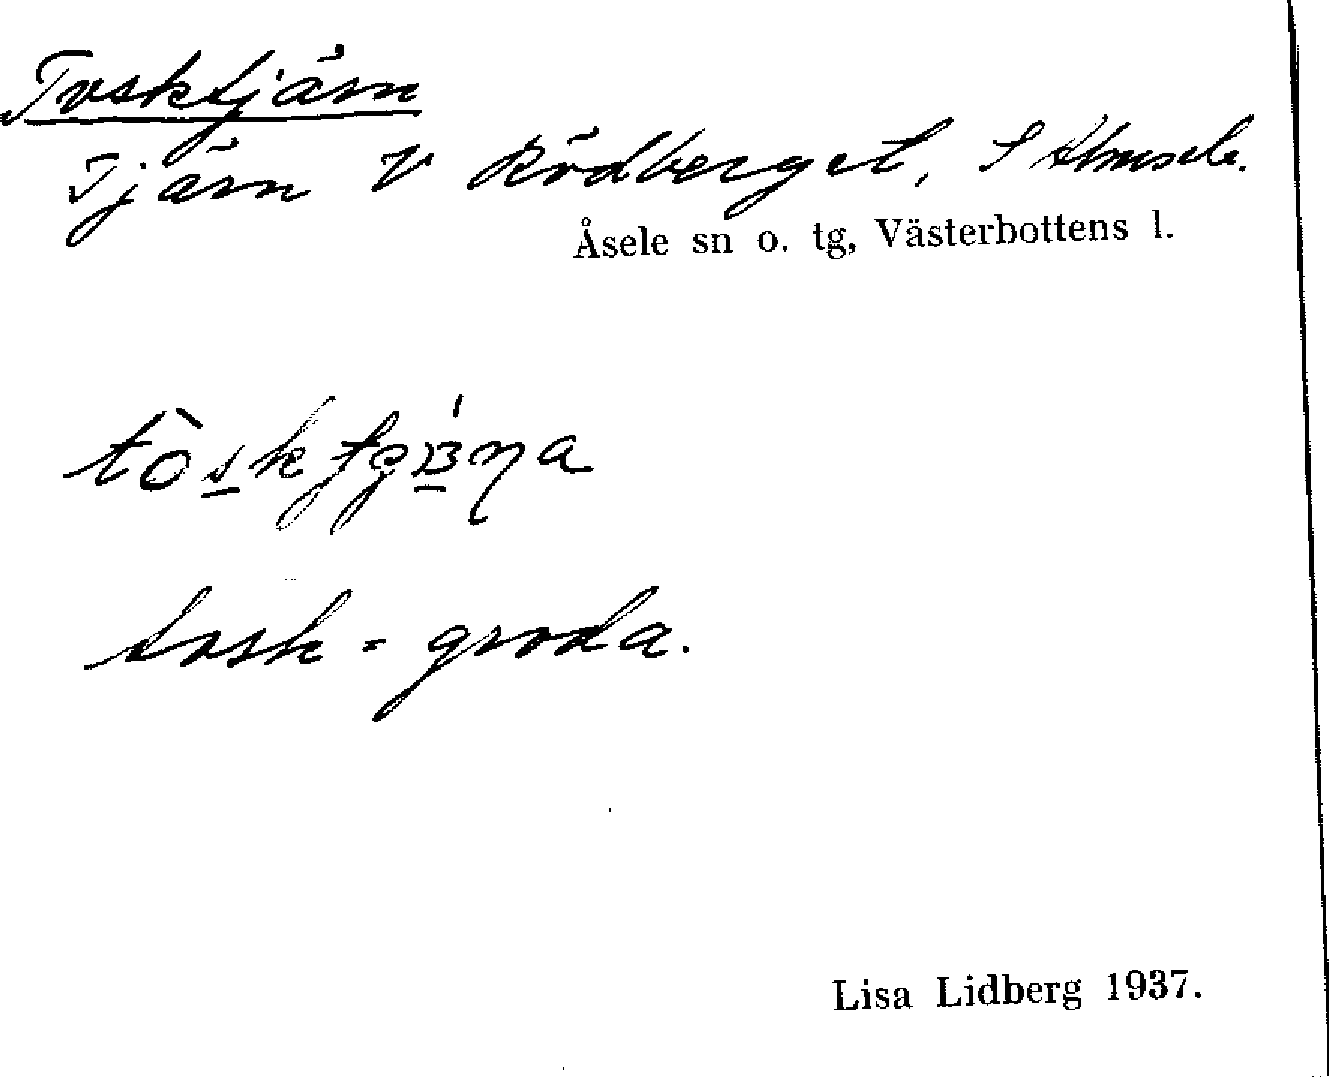 Tosktjärn
Tjärn V Rödberget, S Almsele.
Åsele sn o. tg, Västerbottens l.
tosk = groda.
Lisa Lidberg 1937.